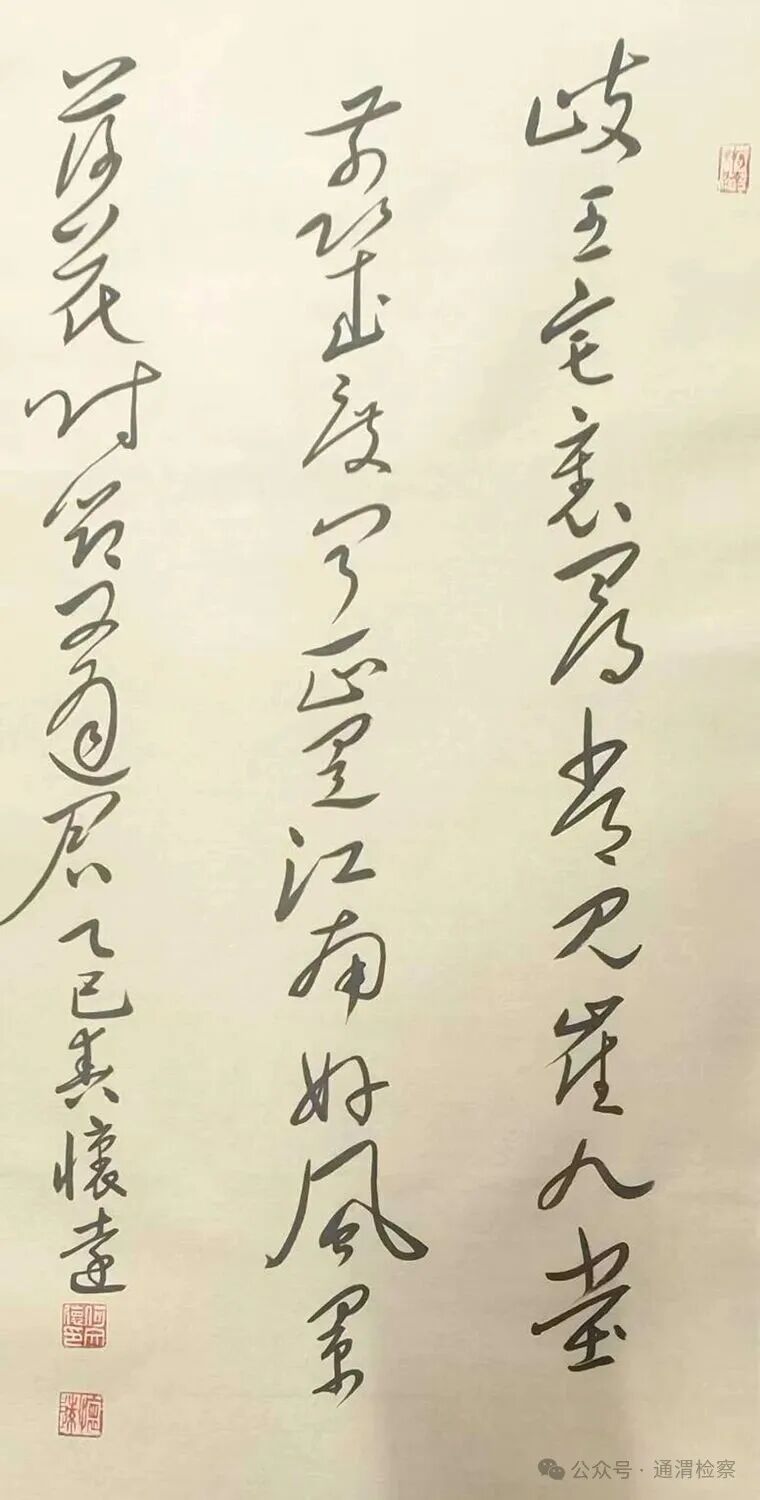 岐王宅裏尋常見崔九堂
前幾度聞正是江南好風景
落花時節又逢君乙巳春懷達
公众号·通渭检察